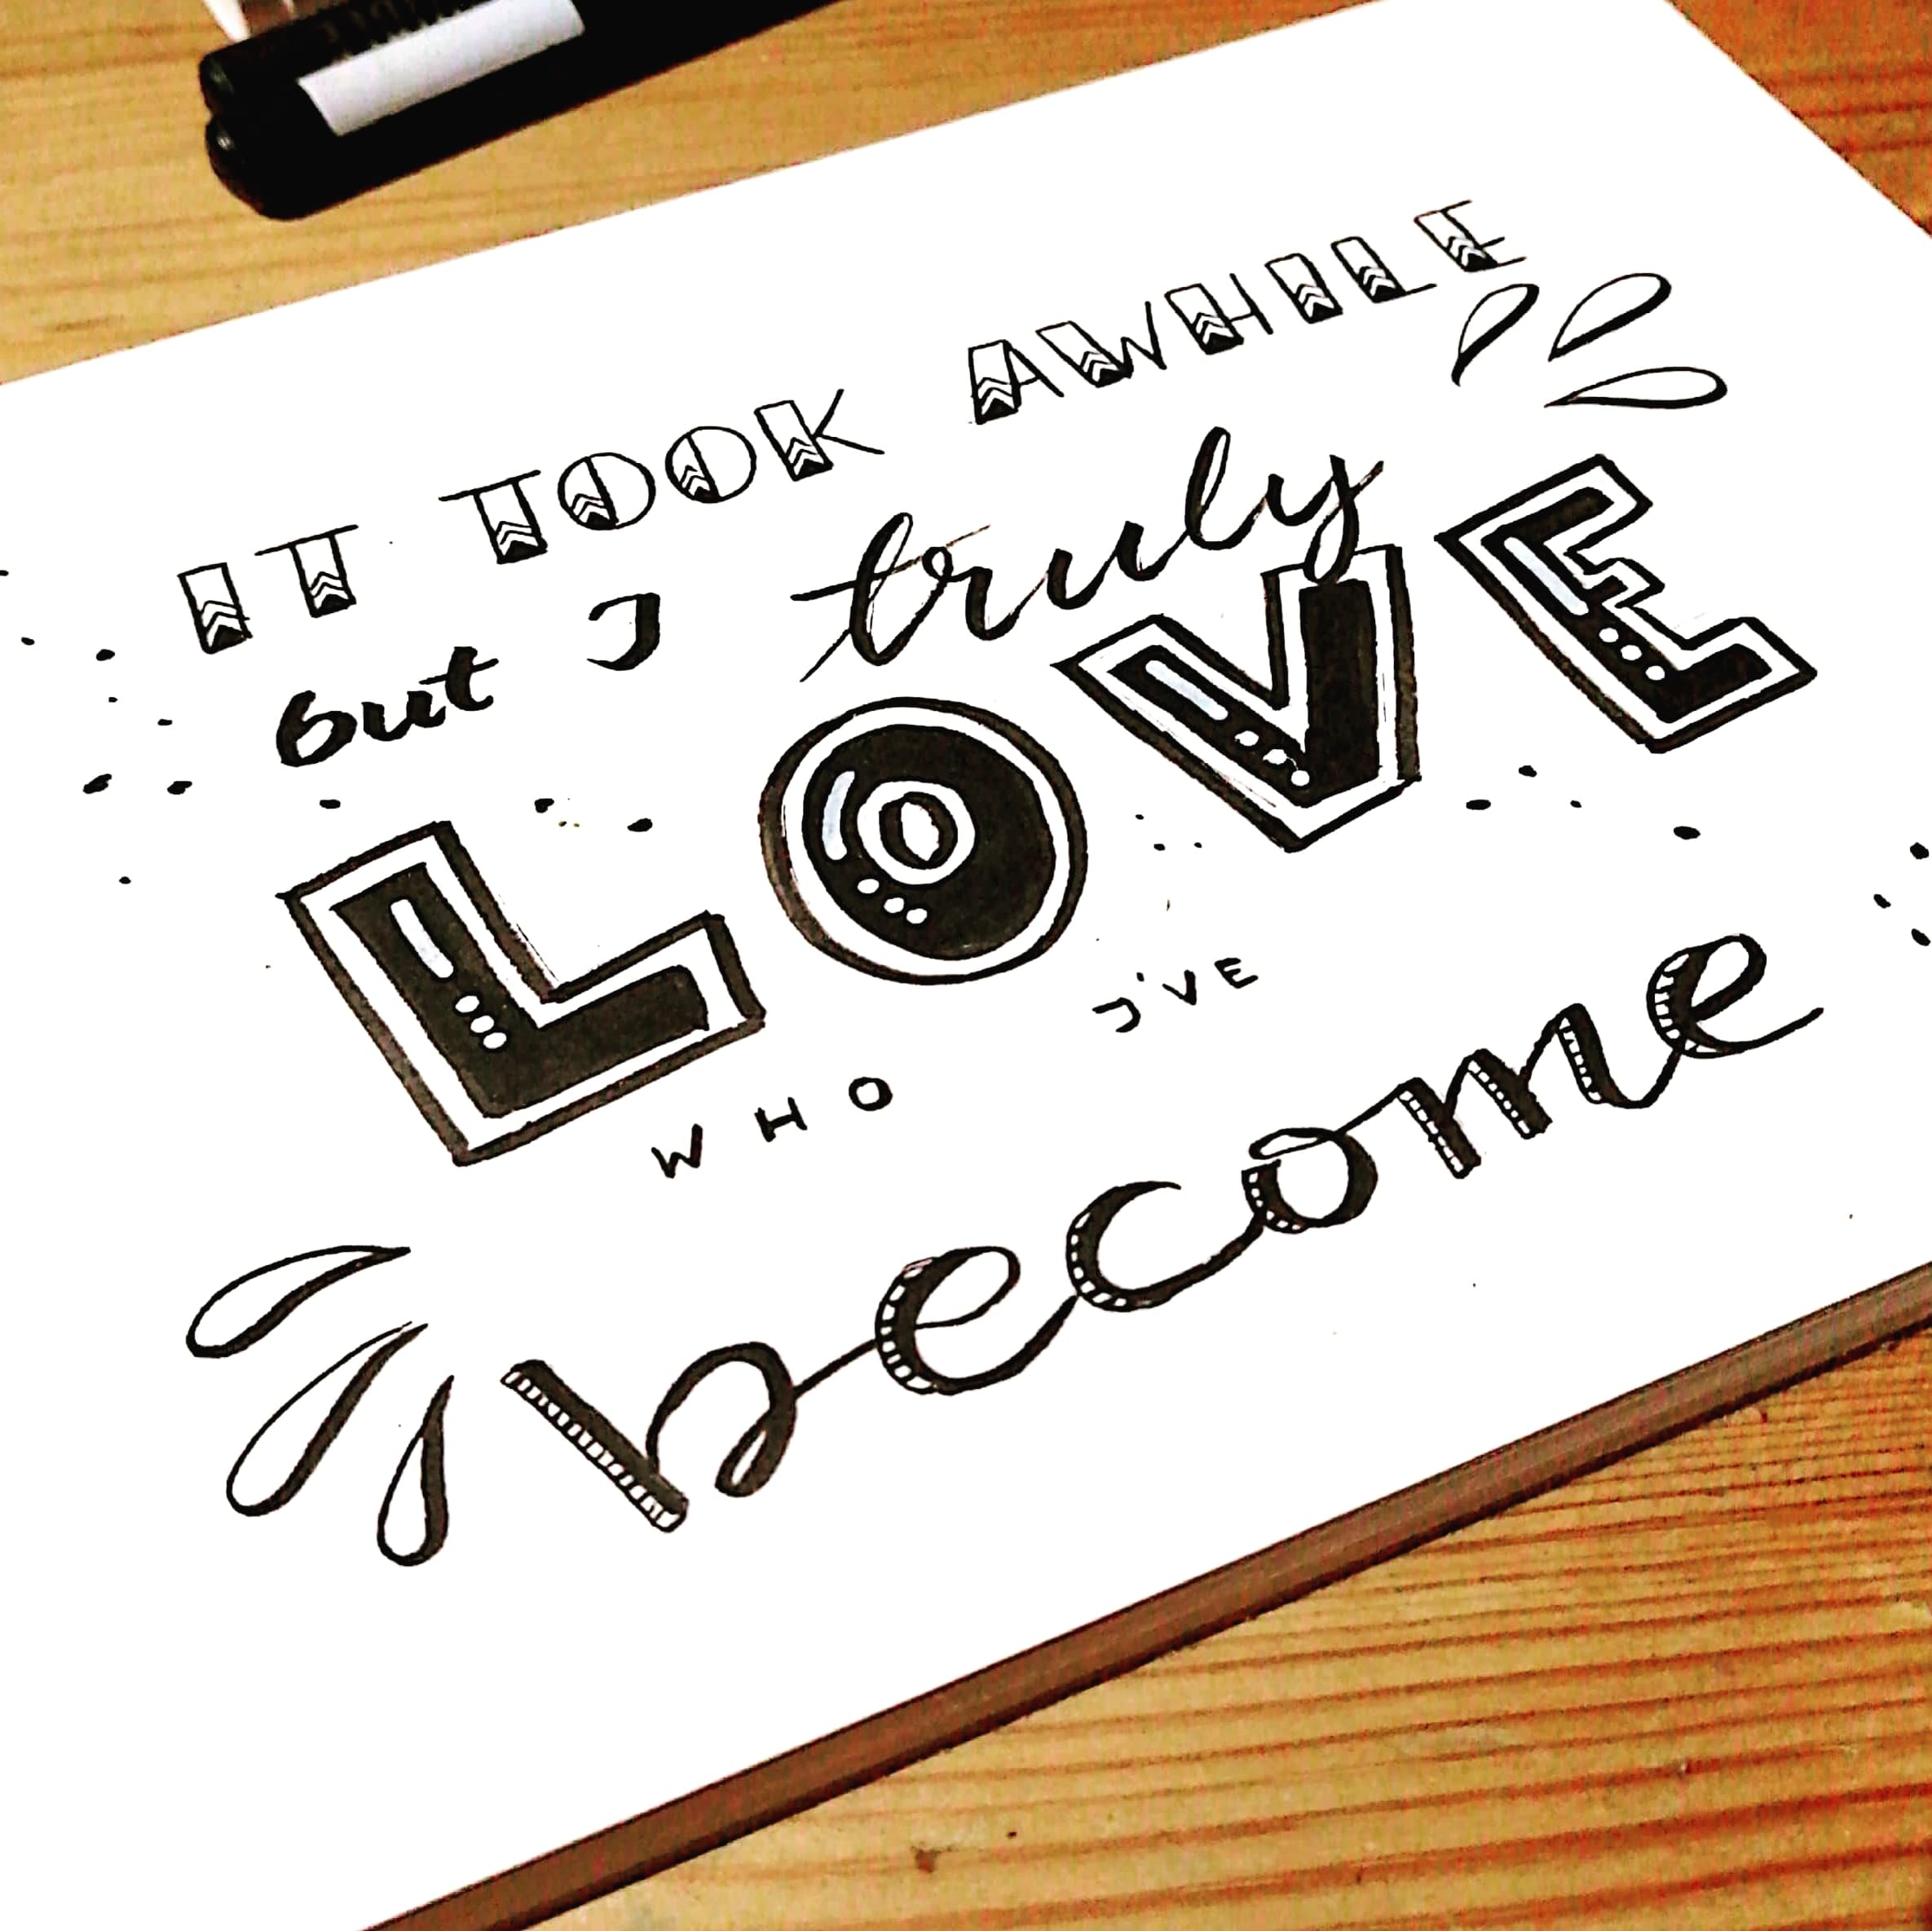 IT TOOK AWHILE
but I truly
LOVE
WHO I'VE
become